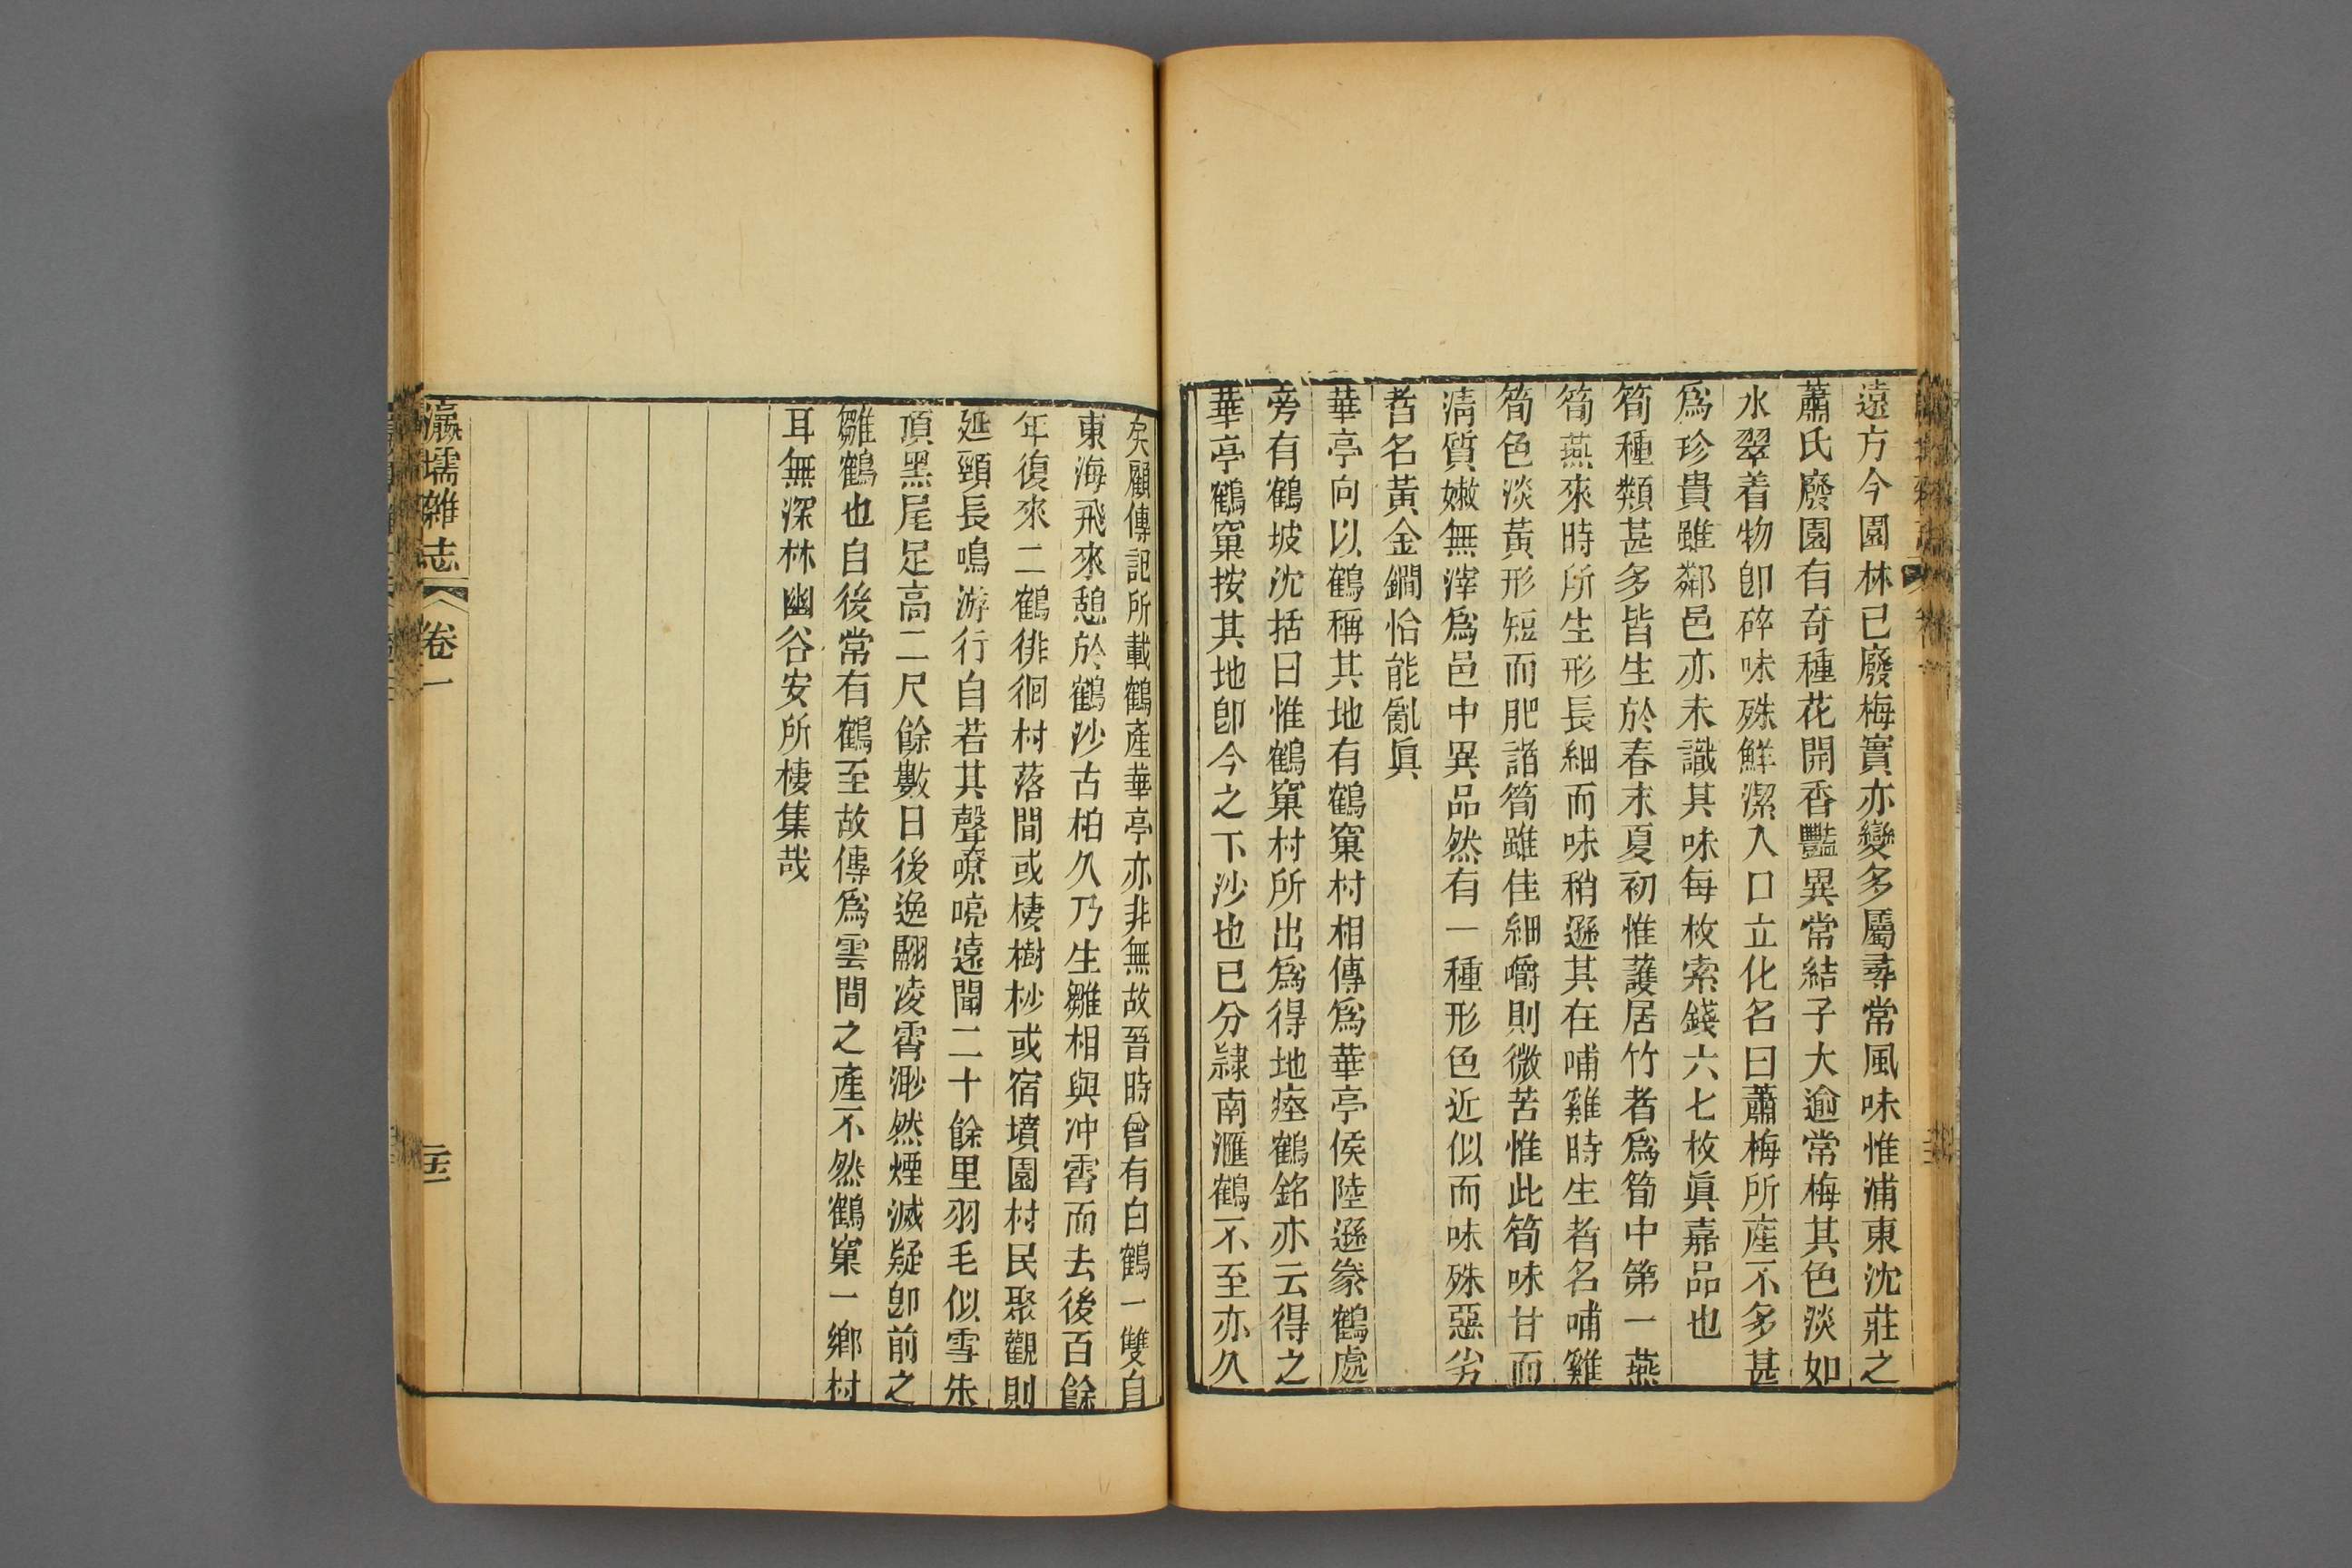 遠方今園林已廢梅實亦變多屬尋常風味惟浦東沈莊之
蕭氏廢園有奇種花開香豔異常結子大逾常梅其色淡如
水翠着物卽碎味殊鮮潔入口立化名曰蕭梅所產不多甚
爲珍貴雖鄰邑亦未識其味每枚索錢六七枚眞嘉品也
筍種類甚多皆生於春末夏初惟護居竹者爲筍中第一燕
筍燕來時所生形長細而味稍遜其在哺雞時生者名哺雞
筍色淡黃形短而肥諸筍雖佳細嚼則微苦惟此筍味甘而
淸質嫩無滓爲邑中異品然有一種形色近似而味殊惡劣
者名黃金鐗恰能亂眞
華亭向以鶴稱其地有鶴窠村相傳爲華亭侯陸遜豢鶴處
旁有鶴坡沈括曰惟鶴窠村所出爲得地瘞鶴銘亦云得之
華亭鶴窠按其地卽今之下沙也已分隸南滙鶴不至亦久
矣顧傳記所載鶴產華亭亦非無故晉時曾有白鶴一雙自
東海飛來憩於鶴沙古柏久乃生雛相與沖霄而去後百餘
年復來二鶴徘徊村落間或棲樹杪或宿墳園村民聚觀則
延頸長鳴游行自若其聲嘹喨遠聞二十餘里羽毛似雪朱
頂黑尾足高二尺餘數日後逸翮凌霄渺然煙滅疑卽前之
雛鶴也自後常有鶴至故傳爲雲間之產不然鶴窠一鄉村
耳無深林幽谷安所棲集哉
瀛壖雜志
卷一